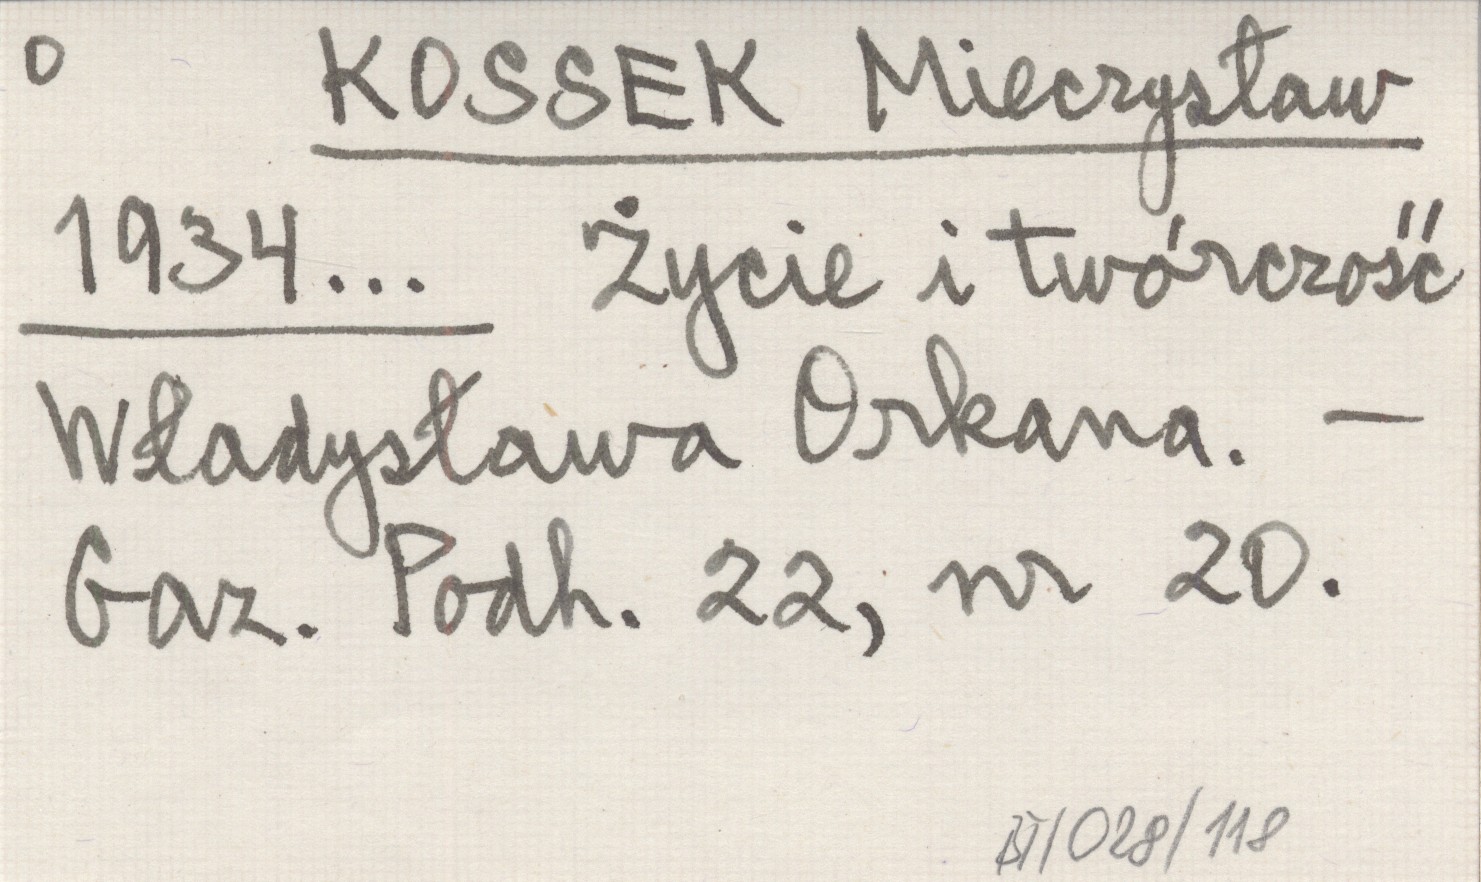 O KOSSEK Mieczysław
1934... Życie i twórczość
Władysława Orkana. —
Gaz. Podh. 22, nr 20.
/028/118